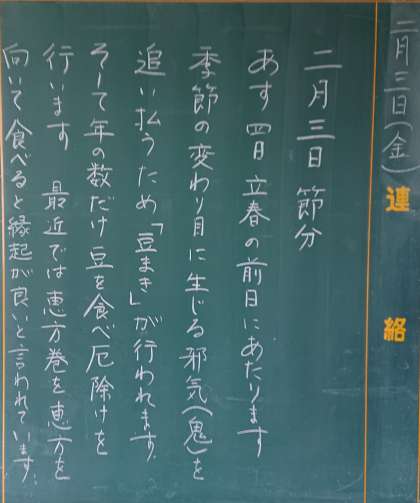 二月三日(金)
連絡
二月三日 節分
あす 四日 立春の前日にあたります
季節の変わり目に生じる邪気(鬼)を
追い払うため「豆まき」が行われます。
そして年の数だけ豆を食べ厄除けを
行います 最近では恵方巻を恵方を
向いて食べると縁起が良いと言われています。